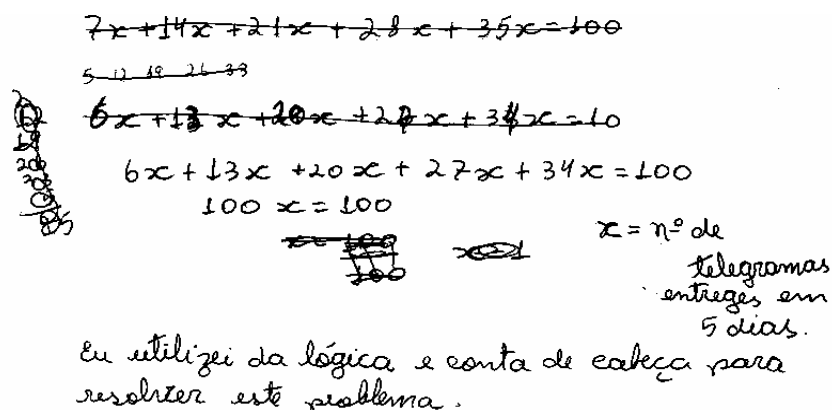 7x+14x+21x+28x+35x=100
5 12 19 26 33
6x+13x+20x+27x+34x=10
6x+13x+20x+27x+34x=100
100x=100
x=1
x=nº de
telegramas
entreges em
5 dias.
Eu utilizei da lógica e conta de cabeça para
resolver este problema.